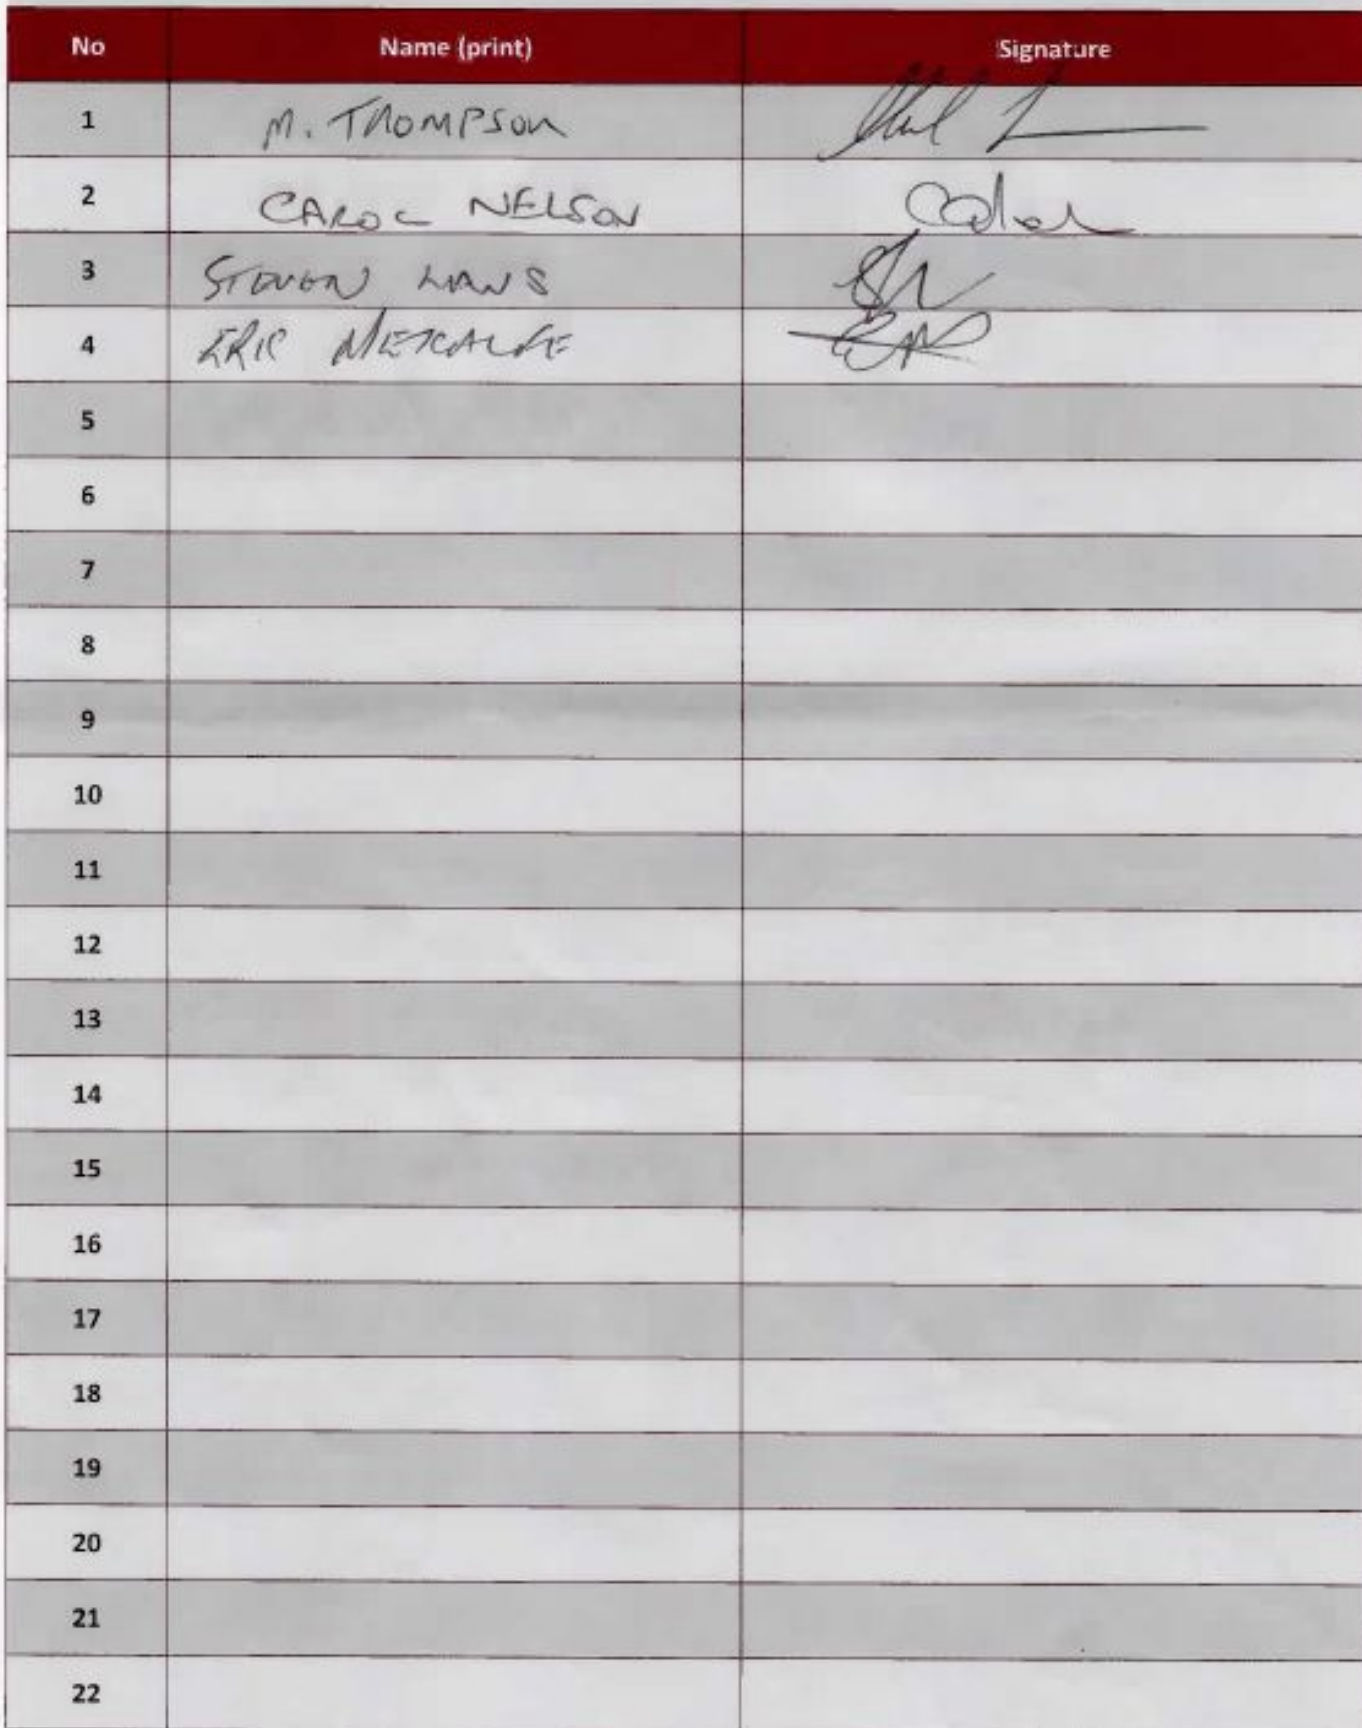 No Name (print) Signature
1 M. THOMPSON
2 CAROL NELSON
3 STEVEN
4 ERIC METCALFE
5
6
7
8
9
10
11
12
13
14
15
16
17
18
19
20
21
22